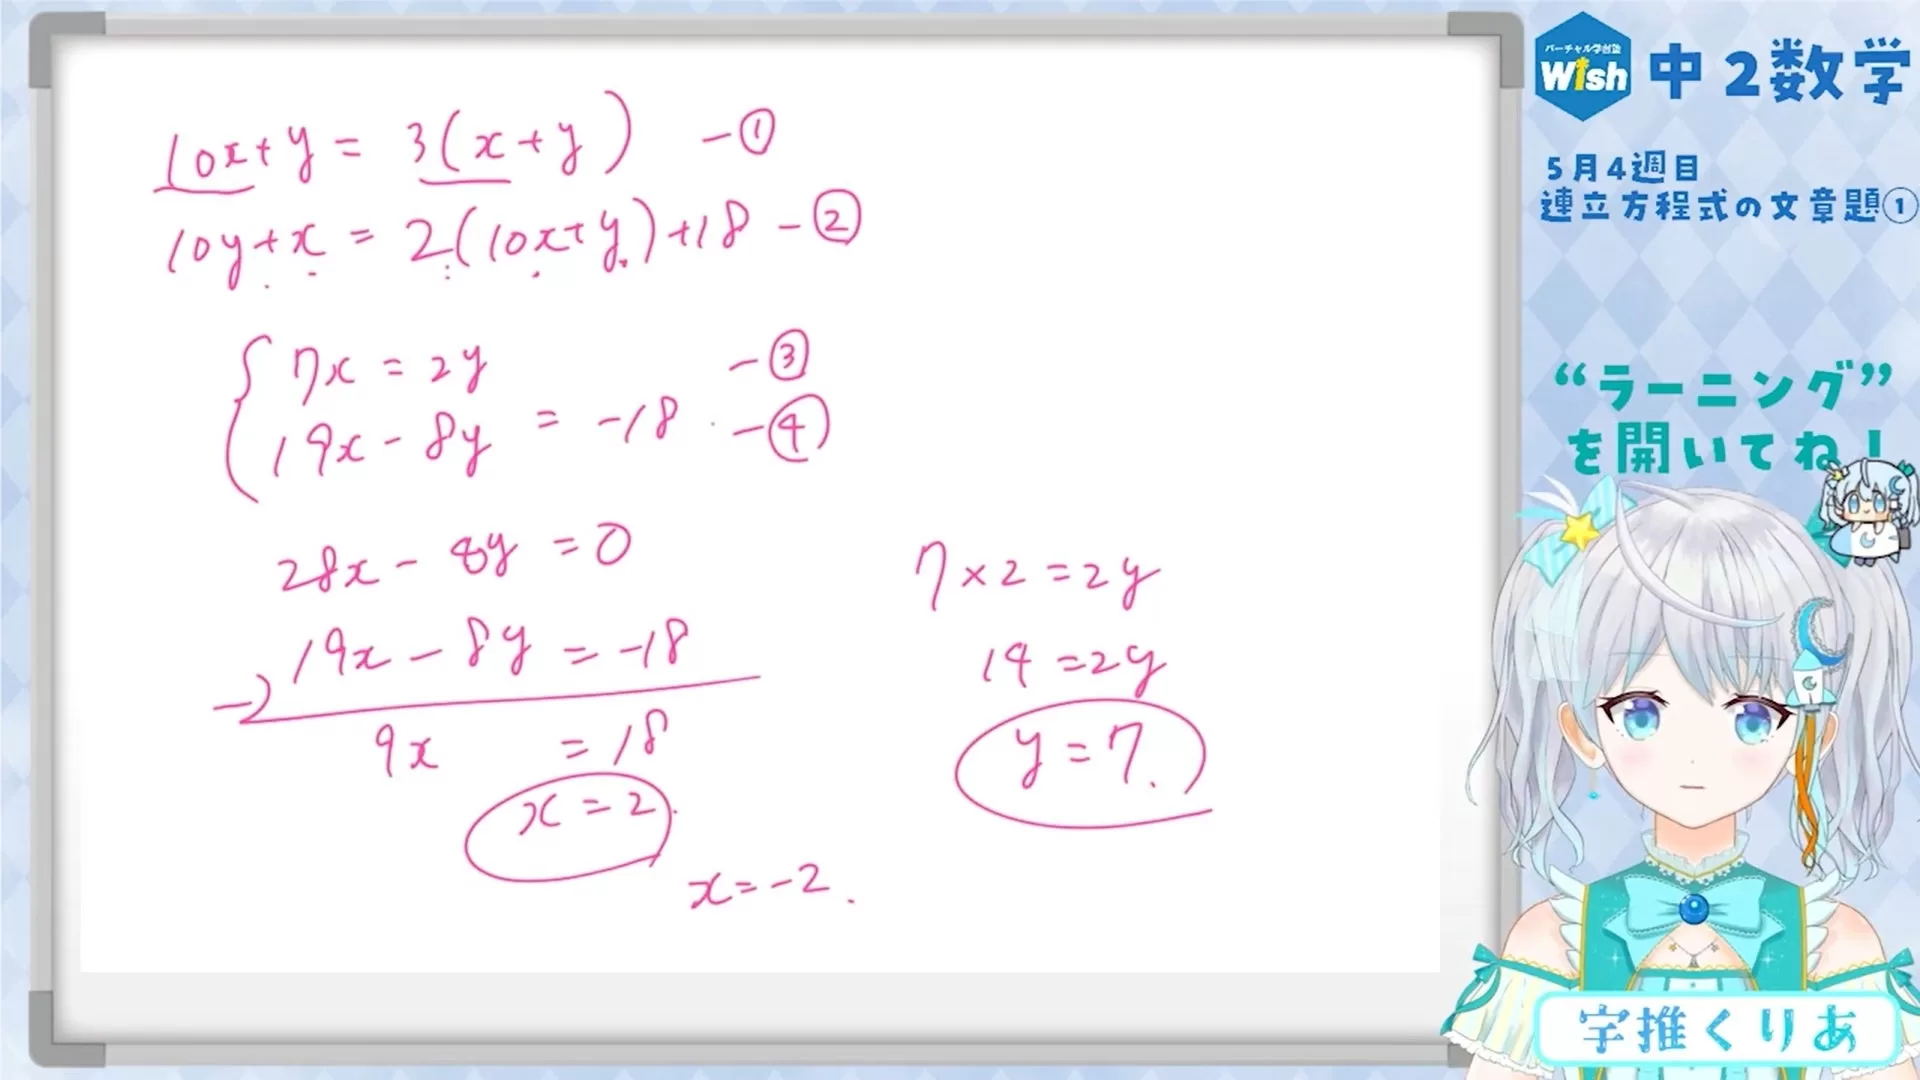 10x+y = 3(x+y) -①
10y+x = 2(10x+y)+18 -②
7x = 2y -③
19x-8y = -18 -④
28x-8y = 0
19x-8y = -18
-)
9x = 18
x = 2.
x = -2.
7×2 = 2y
14 = 2y
y = 7.
バーチャル学習塾
Wish
中2数学
5月4週目
連立方程式の文章題①
“ラーニング”
を開いてね!
宇推くりあ